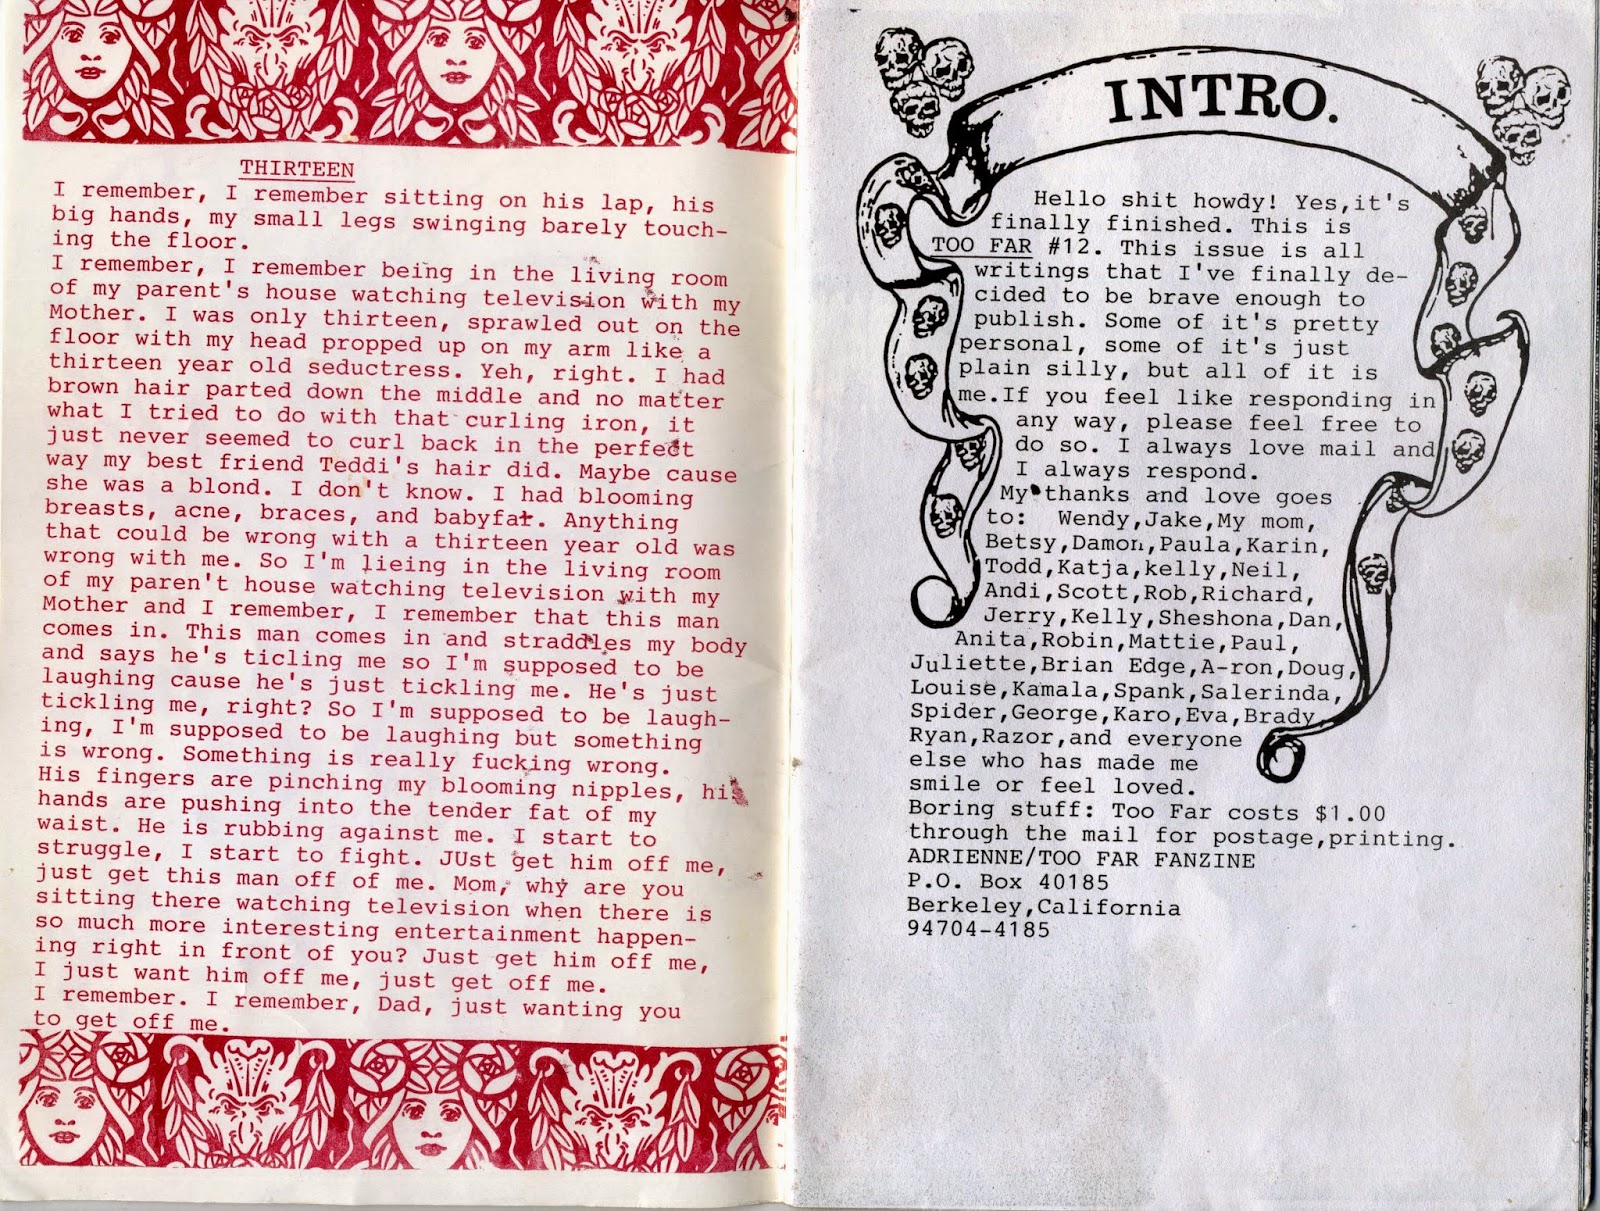 THIRTEEN
I remember, I remember sitting on his lap, his
big hands, my small legs swinging barely touch-
ing the floor.
I remember, I remember being in the living room
of my parent's house watching television with my
Mother. I was only thirteen, sprawled out on the
floor with my head propped up on my arm like a
thirteen year old seductress. Yeh, right. I had
brown hair parted down the middle and no matter
what I tried to do with that curling iron, it
just never seemed to curl back in the perfect
way my best friend Teddi's hair did. Maybe cause
she was a blond. I don't know. I had blooming
breasts, acne, braces, and babyfat. Anything
that could be wrong with a thirteen year old was
wrong with me. So I'm lieing in the living room
of my paren't house watching television with my
Mother and I remember, I remember that this man
comes in. This man comes in and straddles my body
and says he's ticling me so I'm supposed to be
laughing cause he's just tickling me. He's just
tickling me, right? So I'm supposed to be laugh-
ing, I'm supposed to be laughing but something
is wrong. Something is really fucking wrong.
His fingers are pinching my blooming nipples, his
hands are pushing into the tender fat of my
waist. He is rubbing against me. I start to
struggle, I start to fight. JUst get him off me,
just get this man off of me. Mom, why are you
sitting there watching television when there is
so much more interesting entertainment happen-
ing right in front of you? Just get him off me,
I just want him off me, just get off me.
I remember. I remember, Dad, just wanting you
to get off me.
INTRO.
Hello shit howdy! Yes,it's
finally finished. This is
TOO FAR #12. This issue is all
writings that I've finally de-
cided to be brave enough to
publish. Some of it's pretty
personal, some of it's just
plain silly, but all of it is
me.If you feel like responding in
any way, please feel free to
do so. I always love mail and
I always respond.
My thanks and love goes
to: Wendy,Jake,My mom,
Betsy,Damon,Paula,Karin,
Todd,Katja,kelly,Neil,
Andi,Scott,Rob,Richard,
Jerry,Kelly,Sheshona,Dan,
Anita,Robin,Mattie,Paul,
Juliette,Brian Edge,A-ron,Doug,
Louise,Kamala,Spank,Salerinda,
Spider,George,Karo,Eva,Brady,
Ryan,Razor,and everyone
else who has made me
smile or feel loved.
Boring stuff: Too Far costs $1.00
through the mail for postage,printing.
ADRIENNE/TOO FAR FANZINE
P.O. Box 40185
Berkeley,California
94704-4185